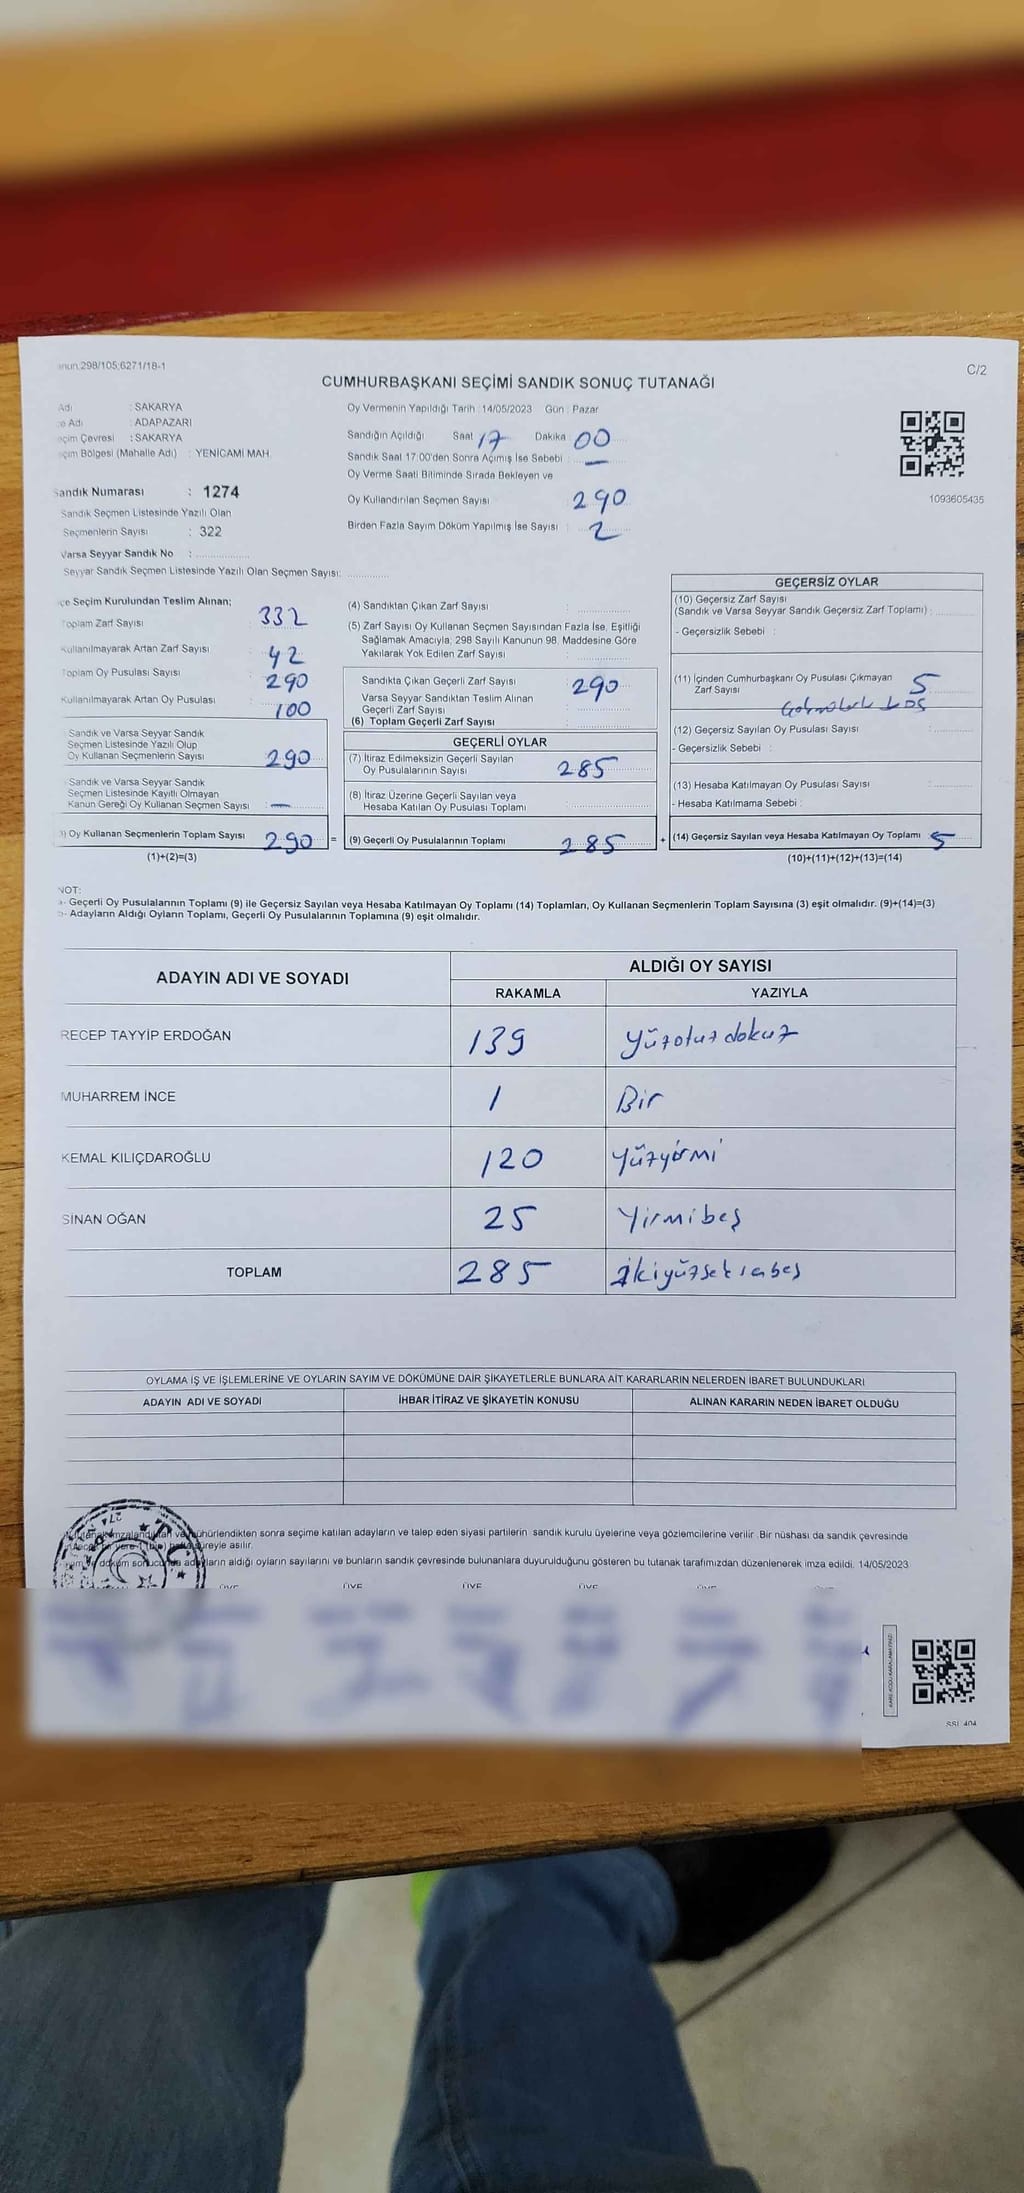 anun:298/105;6271/18-1
C/2
CUMHURBAŞKANI SEÇİMİ SANDIK SONUÇ TUTANAĞI
Adı : SAKARYA
çe Adı : ADAPAZARI
eçim Çevresi : SAKARYA
çim Bölgesi (Mahalle Adı) : YENİCAMİ MAH.
Sandık Numarası : 1274
Sandık Seçmen Listesinde Yazılı Olan
Seçmenlerin Sayısı : 322
Varsa Seyyar Sandık No :
Seyyar Sandık Seçmen Listesinde Yazılı Olan Seçmen Sayısı:
Oy Vermenin Yapıldığı Tarih : 14/05/2023 Gün : Pazar
Sandığın Açıldığı Saat 17 Dakika : 00
Sandık Saat 17:00'den Sonra Açımış İse Sebebi : —
Oy Verme Saati Bitiminde Sırada Bekleyen ve
Oy Kullandırılan Seçmen Sayısı 290
Birden Fazla Sayım Döküm Yapılmış İse Sayısı : 2
1093605435
çe Seçim Kurulundan Teslim Alınan;
Toplam Zarf Sayısı 332
Kullanılmayarak Artan Zarf Sayısı 42
Toplam Oy Pusulası Sayısı 290
Kullanılmayarak Artan Oy Pusulası 100
Sandık ve Varsa Seyyar Sandık
Seçmen Listesinde Yazılı Olup
Oy Kullanan Seçmenlerin Sayısı 290
Sandık ve Varsa Seyyar Sandık
Seçmen Listesinde Kayıtlı Olmayan
Kanun Gereği Oy Kullanan Seçmen Sayısı : —
) Oy Kullanan Seçmenlerin Toplam Sayısı 290 =
(1)+(2)=(3)
(4) Sandıktan Çıkan Zarf Sayısı :
(5) Zarf Sayısı Oy Kullanan Seçmen Sayısından Fazla İse, Eşitliği
Sağlamak Amacıyla; 298 Sayılı Kanunun 98. Maddesine Göre
Yakılarak Yok Edilen Zarf Sayısı :
Sandıkta Çıkan Geçerli Zarf Sayısı : 290
Varsa Seyyar Sandıktan Teslim Alınan
Geçerli Zarf Sayısı :
(6) Toplam Geçerli Zarf Sayısı :
GEÇERLİ OYLAR
(7) İtiraz Edilmeksizin Geçerli Sayılan
Oy Pusulalarının Sayısı 285
(8) İtiraz Üzerine Geçerli Sayılan veya
Hesaba Katılan Oy Pusulası Toplamı :
(9) Geçerli Oy Pusulalarının Toplamı 285 +
GEÇERSİZ OYLAR
(10) Geçersiz Zarf Sayısı
(Sandık ve Varsa Seyyar Sandık Geçersiz Zarf Toplamı) :
- Geçersizlik Sebebi :
(11) İçinden Cumhurbaşkanı Oy Pusulası Çıkmayan 5
Zarf Sayısı
(12) Geçersiz Sayılan Oy Pusulası Sayısı :
- Geçersizlik Sebebi :
(13) Hesaba Katılmayan Oy Pusulası Sayısı :
- Hesaba Katılmama Sebebi :
(14) Geçersiz Sayılan veya Hesaba Katılmayan Oy Toplamı 5
(10)+(11)+(12)+(13)=(14)
NOT:
a- Geçerli Oy Pusulalarının Toplamı (9) ile Geçersiz Sayılan veya Hesaba Katılmayan Oy Toplamı (14) Toplamları, Oy Kullanan Seçmenlerin Toplam Sayısına (3) eşit olmalıdır. (9)+(14)=(3)
b- Adayların Aldığı Oyların Toplamı, Geçerli Oy Pusulalarının Toplamına (9) eşit olmalıdır.
ADAYIN ADI VE SOYADI
ALDIĞI OY SAYISI
RAKAMLA YAZIYLA
RECEP TAYYİP ERDOĞAN 139 Yüzotuzdokuz
MUHARREM İNCE 1 Bir
KEMAL KILIÇDAROĞLU 120 Yüzyirmi
SİNAN OĞAN 25 Yirmibeş
TOPLAM 285 İkiyüzseksenbeş
OYLAMA İŞ VE İŞLEMLERİNE VE OYLARIN SAYIM VE DÖKÜMÜNE DAİR ŞİKAYETLERLE BUNLARA AİT KARARLARIN NELERDEN İBARET BULUNDUKLARI
ADAYIN ADI VE SOYADI İHBAR İTİRAZ VE ŞİKAYETİN KONUSU ALINAN KARARIN NEDEN İBARET OLDUĞU
ve mühürlendikten sonra seçime katılan adayların ve talep eden siyasi partilerin sandık kurulu üyelerine veya gözlemcilerine verilir. Bir nüshası da sandık çevresinde
süreyle asılır.
adayların aldığı oyların sayılarını ve bunların sandık çevresinde bulunanlara duyurulduğunu gösteren bu tutanak tarafımızdan düzenlenerek imza edildi. 14/05/2023
ÜYE ÜYE ÜYE ÜYE ÜYE
SSL 404